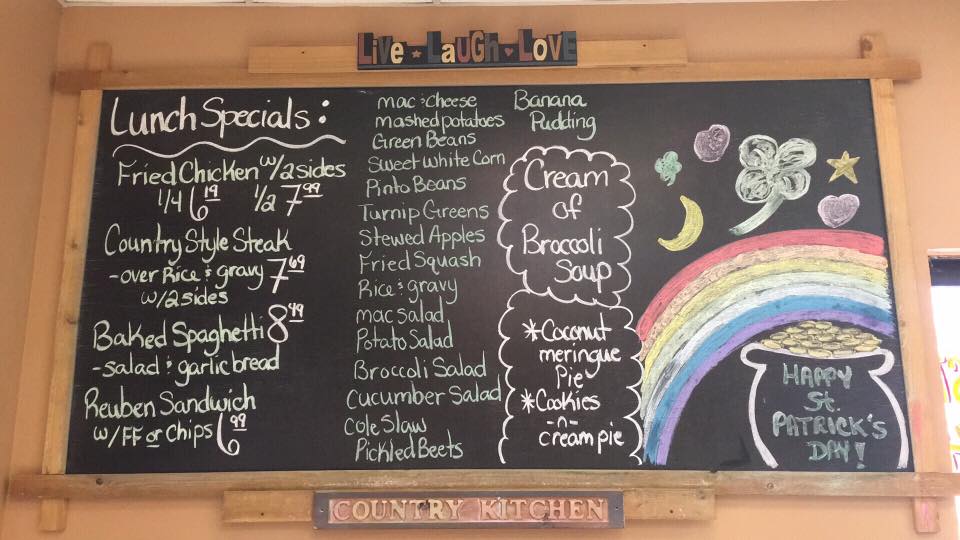 Live Laugh Love
Lunch Specials:
Fried Chicken w/2sides
1/4 6.19 1/2 7.99
Country Style Steak
-over Rice & gravy 7.69
w/2sides
Baked Spaghetti 8.49
-salad & garlic bread
Reuben Sandwich
w/FF or Chips 6.99
mac & cheese
mashed potatoes
Green Beans
Sweet White Corn
Pinto Beans
Turnip Greens
Stewed Apples
Fried Squash
Rice & gravy
mac salad
Potato Salad
Broccoli Salad
Cucumber Salad
Cole Slaw
Pickled Beets
Banana
Pudding
Cream
of
Broccoli
Soup
*Coconut
meringue
Pie
*Cookies
-n-
cream pie
HAPPY
St.
PATRICK'S
DAY!
COUNTRY KITCHEN